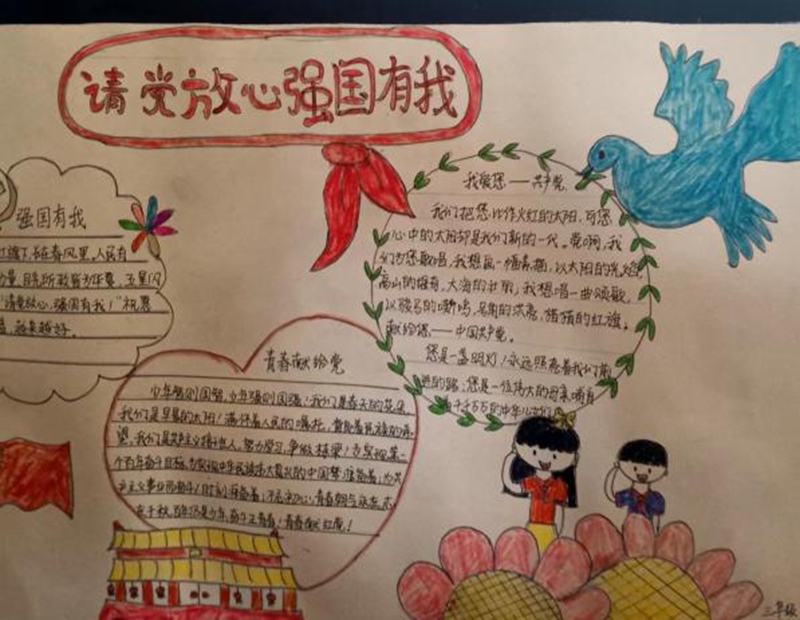 请党放心强国有我
强国有我
在春风里。人民有
"请党放心,强国有我!"祝愿
越来越好。
我爱您——共产党
我们把您比作火红的太阳,而您
心中的太阳却是我们新的一代。党啊,我
们为您歌唱,我想画一幅素描,以太阳的光焰
高山的雄奇,大海的壮丽,我想唱一曲颂歌,
以骏马的嘶鸣,号角的嘹亮,猎猎的红旗。
献给您——中国共产党。
您是一盏明灯!永远照亮着我们前
进的路;您是一位伟大的母亲哺育
千千万万的中华儿女们
青春献给党
少年智则国智,少年强则国强!我们是春天的花朵
我们是早晨的太阳!满怀着人民的嘱托,
望,我们是共产主义接班人,努力学习,争做栋梁!为实现第一
个百年奋斗目标,为实现中华民族伟大复兴的中国梦,准备着;为共
产主义事业而奋斗!时刻准备着;不忘初心,青春朝气永在,志
在千秋,百年仍是少年,奋斗正青春!青春献红党!
三年级